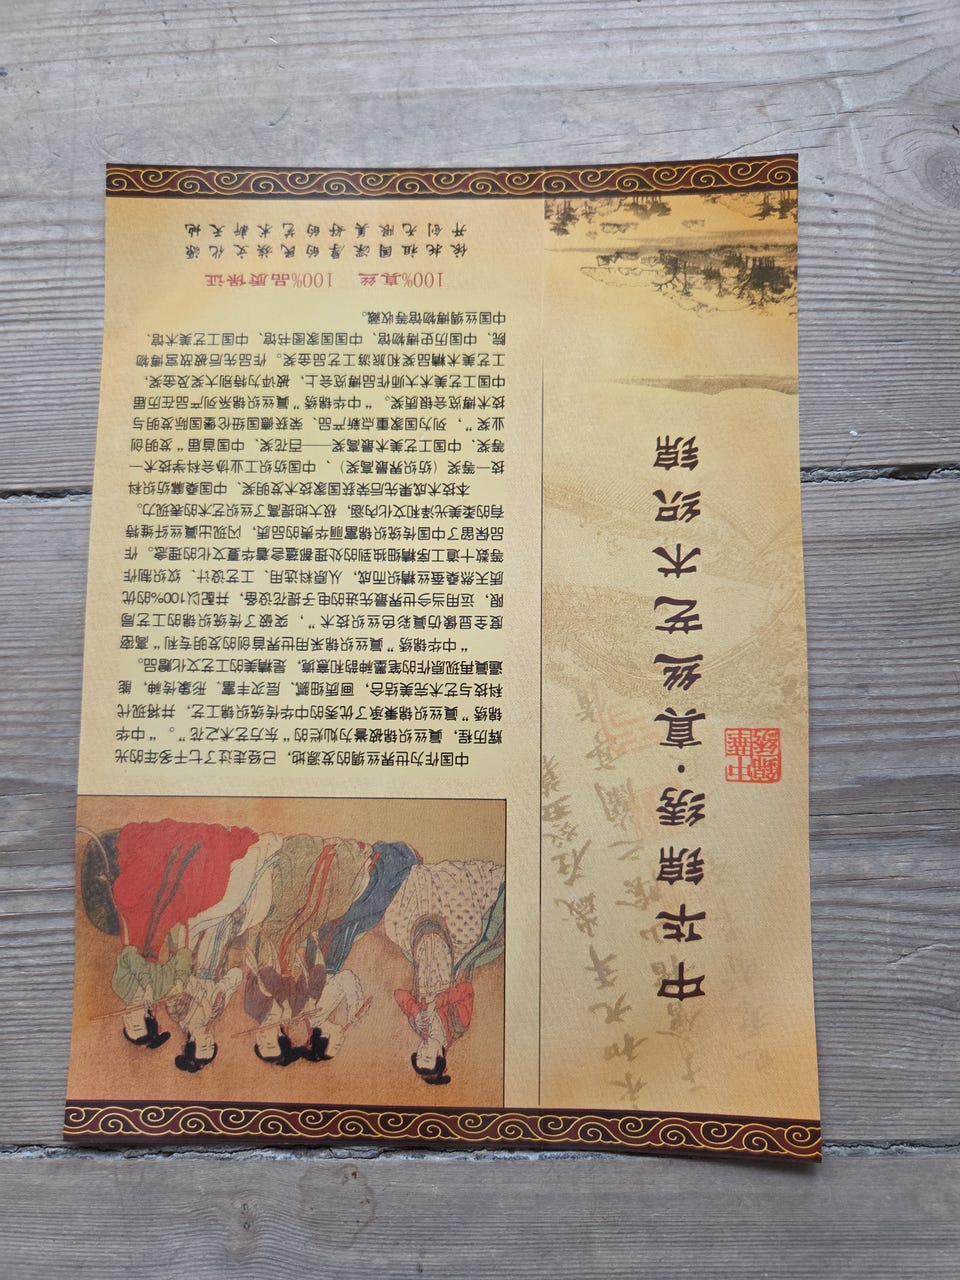 中华锦绣·真丝艺术织锦
中華錦繡
中国作为世界丝绸的发源地，已经走过了七千多年的光
辉历程，真丝织锦被誉为灿烂的“东方艺术之花”。“中华
锦绣”真丝织锦秉承了优秀的中华传统织锦工艺，并将现代
科技与艺术完美结合，画质细腻、层次丰富、形象传神，能
逼真再现原作的笔墨神韵和意境，是精美的工艺文化赠品。
“中华锦绣”真丝织锦采用世界首创的发明专利“高密
度全显像仿真彩色丝织技术”，突破了传统织锦的工艺局
限，运用当今世界最先进的电子提花设备，并配以100%的优
质天然桑蚕丝精织而成，从原料选用、工艺设计、纹织制作
等数十道工序精细独到的处理都蕴含着华夏文化的理念。作
品保留了中国传统织锦富丽华贵的品质，闪现出真丝纤维特
有的柔美光泽和文化内涵，极大地提高了丝织艺术的表现力。
本技术成果先后荣获国家技术发明奖、中国桑麻纺织科
技一等奖（纺织界最高奖）、中国纺织工业协会科学技术一
等奖、中国工艺美术最高奖——百花奖、中国首届“发明创
业奖”，列为国家重点新产品、荣获德国纽伦堡国际发明与
技术博览会银质奖。“中华锦绣”真丝织锦系列产品在历届
中国工艺美术大师作品博览会上，被评为特别大奖及金奖，
工艺美术精品奖和旅游工艺品金奖。作品先后被故宫博物
院、中国历史博物馆、中国国家图书馆、中国工艺美术馆、
中国丝绸博物馆等收藏。
100%真丝 100%品质保证
依托祖国深厚的民族文化源
开创无限美好的艺术新天地